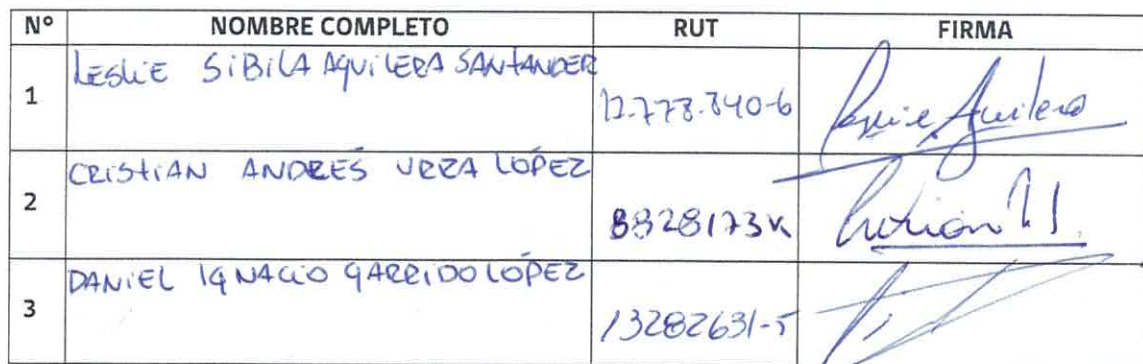 N° NOMBRE COMPLETO RUT FIRMA
1 LESLIE SIBILA AQUILERA SANTANDER 12.778.840-6
2 CRISTIAN ANDRÉS URRA LÓPEZ 8828173K
3 DANIEL IGNACIO GARRIDO LÓPEZ 13282631-5